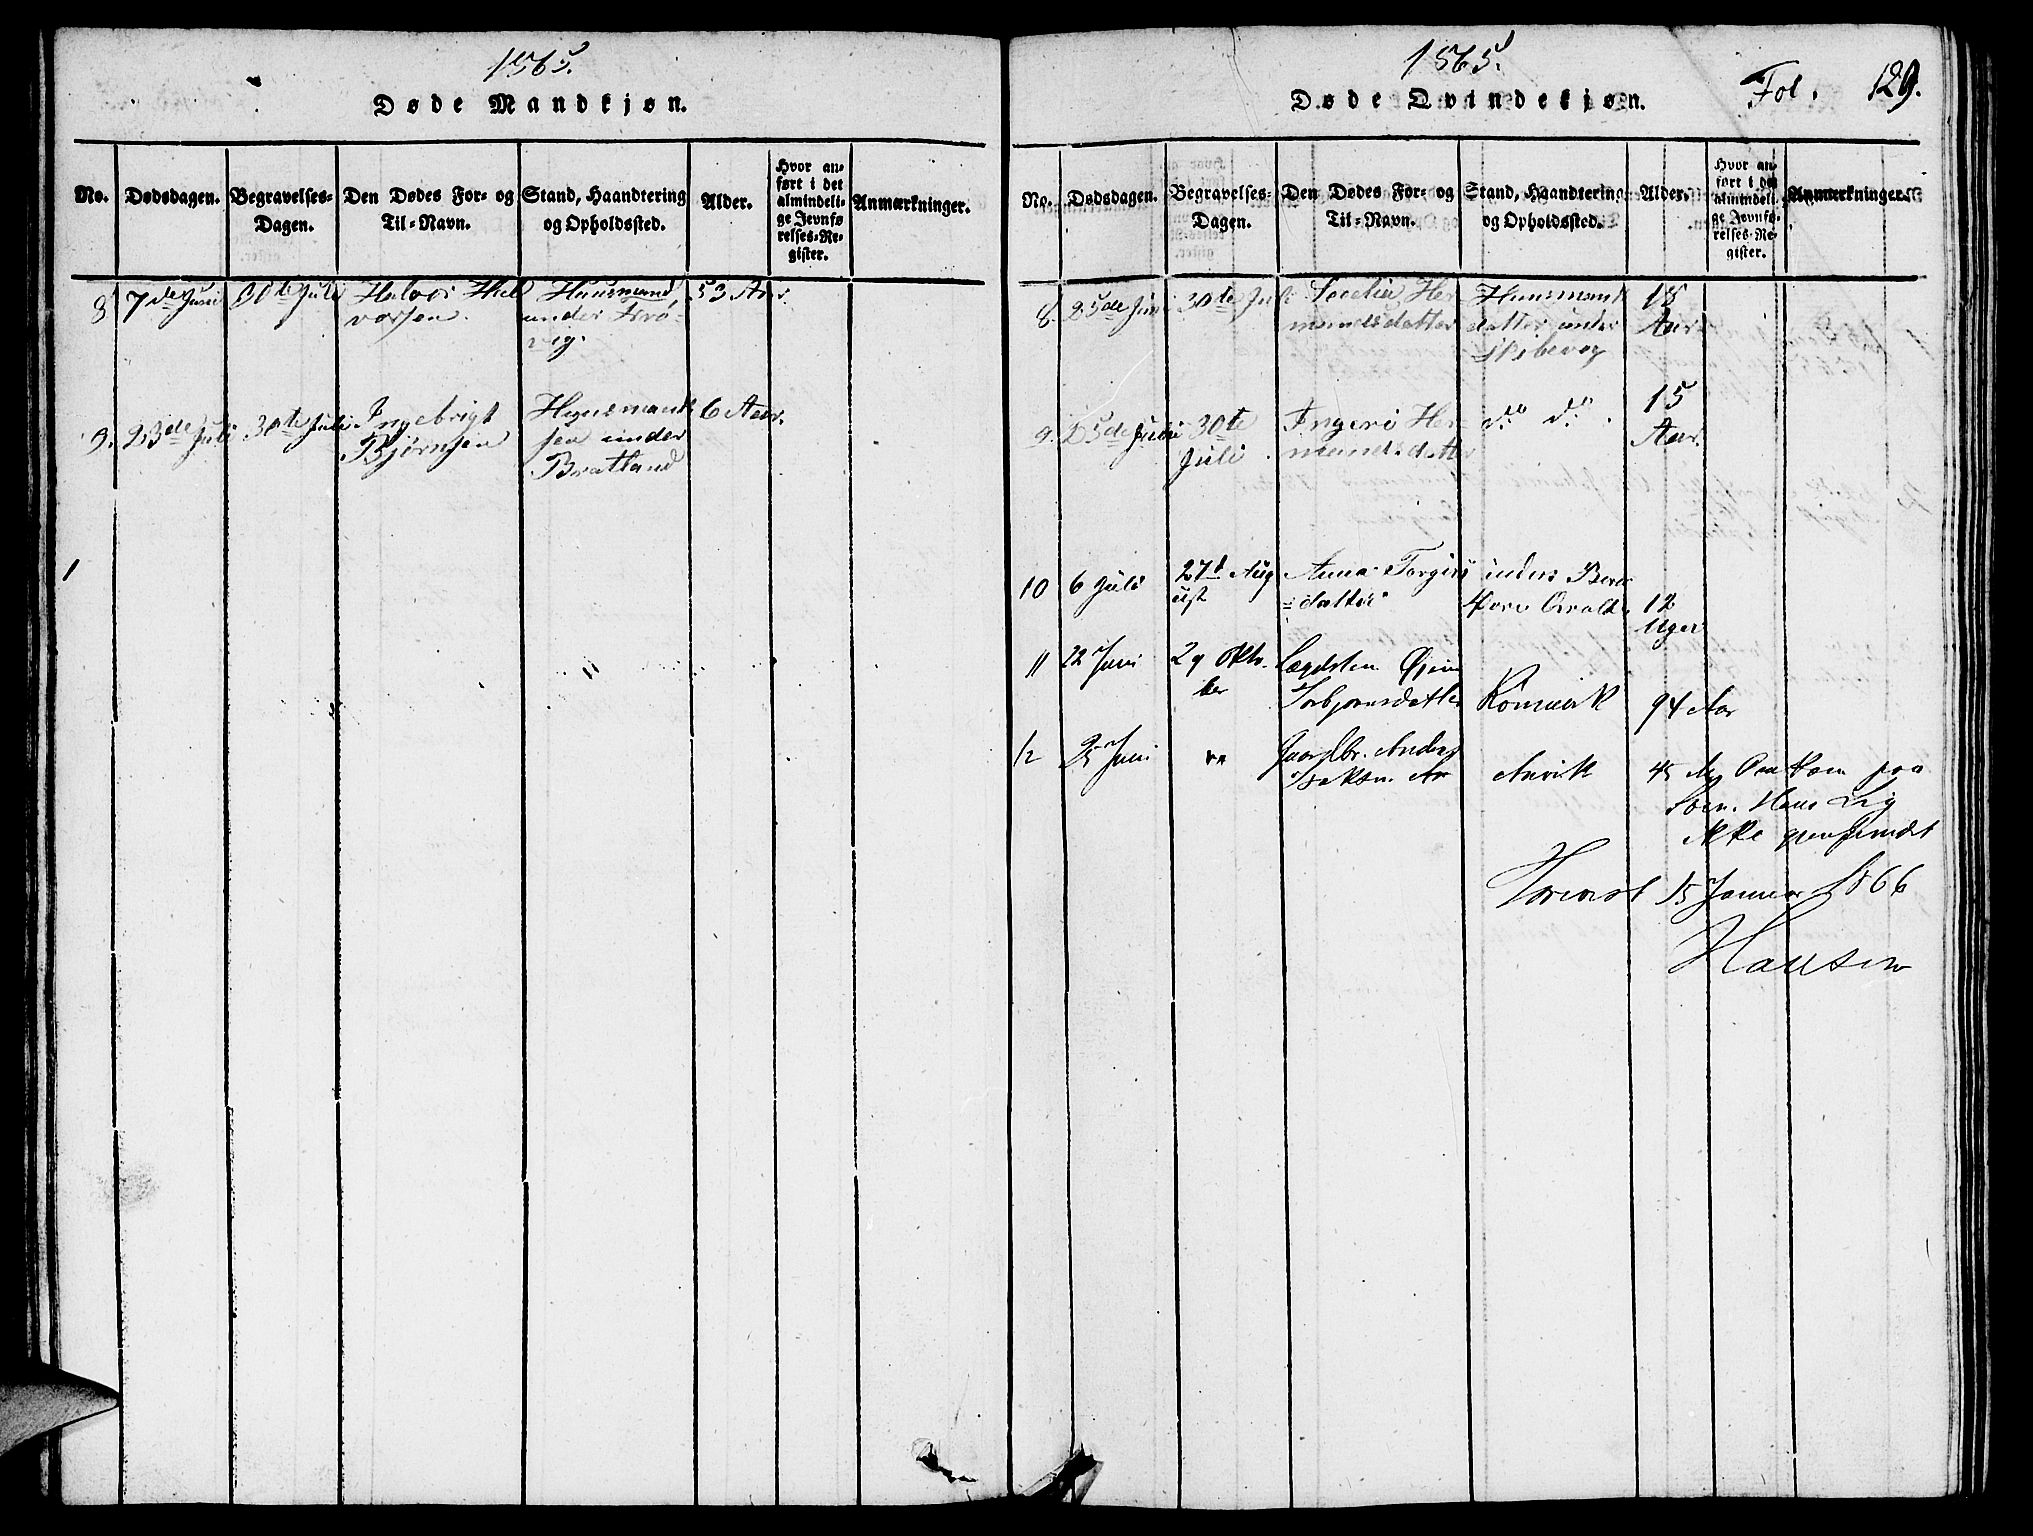 1865.
Døde Mandkjøn.
No.
Dødsdagen.
Begravelses-
Dagen.
Den Dødes For- og
Til-Navn.
Stand, Haandtering
og Opholdssted.
Alder.
Hvor an-
ført i det
almindeli-
ge Jevnfø
relses-Re-
gister.
Anmærkninger.
8
7de Juni
30te Juli
Halvor Hal
vorsen.
Huusmand,
under
vig.
53 Aar.
9.
23de Juli
30te Juli
Ingebrigt
Bjørnsen
Huusmands
søn under
Bratland
6 Aar.
1865.
Døde Qvindekjøn.
Fol. 129.
No.
Dødsdagen.
Begravelses-
Dagen.
Den Dødes For- og
Til-Navn.
Stand, Haandtering
og Opholdssted.
Alder.
Hvor an-
ført i det
almindeli-
ge Jevnfø-
relses-Re-
gister.
Anmærkninger.
8.
25de
30te Juli
Her
mundsdatter
Huusmands
datter under
Aar
9.
25de
30te
Juli
Ingeri Her
mundsdatter
do do.
15
Aar.
10
6 Juli
27t Aug
ust
Anna Torgirs
datter
under
12
Uger
11
22 Juni
29 Okto
ber
Torbjørnsdatter
94 Aar
12
25 Juni
Anders
45
Omkom paa
Søen. Hans Lig
ikke gjenfundet
15 Januar 1866
Hansen